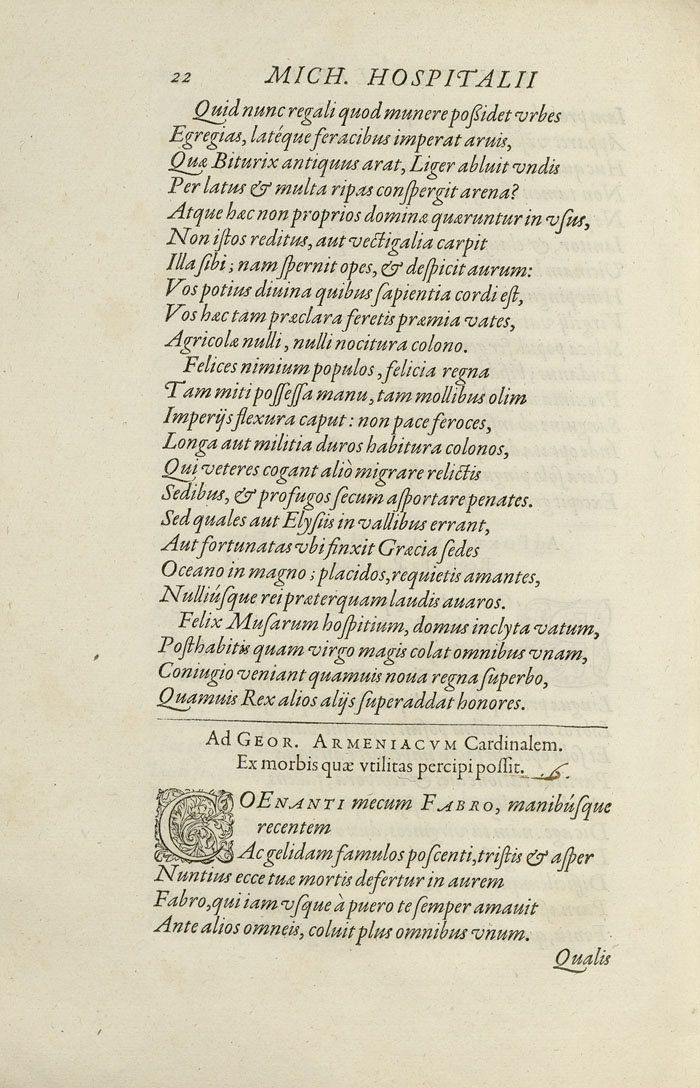 22 MICH. HOSPITALII
Quid nunc regali quod munere poßidet vrbes
Egregias, latéque feracibus imperat aruis,
Quæ Biturix antiquus arat, Liger abluit vndis
Per latus & multa ripas conſpergit arena?
Atque hæc non proprios dominæ quæruntur in vſus,
Non iſtos reditus, aut vectigalia carpit
Illa ſibi; nam ſpernit opes, & deſpicit aurum:
Vos potius diuina quibus ſapientia cordi eſt,
Vos hæc tam præclara feretis præmia vates,
Agricolæ nulli, nulli nocitura colono.
Felices nimium populos, felicia regna
Tam miti poſſeſſa manu, tam mollibus olim
Imperijs flexura caput: non pace feroces,
Longa aut militia duros habitura colonos,
Qui veteres cogant aliò migrare relictis
Sedibus, & profugos ſecum aſportare penates.
Sed quales aut Elyſiis in vallibus errant,
Aut fortunatas vbi finxit Græcia ſedes
Oceano in magno; placidos, requietis amantes,
Nulliúſque rei præterquam laudis auaros.
Felix Muſarum hoſpitium, domus inclyta vatum,
Poſthabitis quam virgo magis colat omnibus vnam,
Coniugio veniant quamuis noua regna ſuperbo,
Quamuis Rex alios alijs ſuperaddat honores.
Ad GEOR. ARMENIACVM Cardinalem.
Ex morbis quæ vtilitas percipi poſſit. .6.
COENANTI mecum FABRO, manibúſque
recentem
Ac gelidam famulos poſcenti, triſtis & aſper
Nuntius ecce tuæ mortis defertur in aurem
Fabro, qui iam vſque à puero te ſemper amauit
Ante alios omneis, coluit plus omnibus vnum.
Qualis